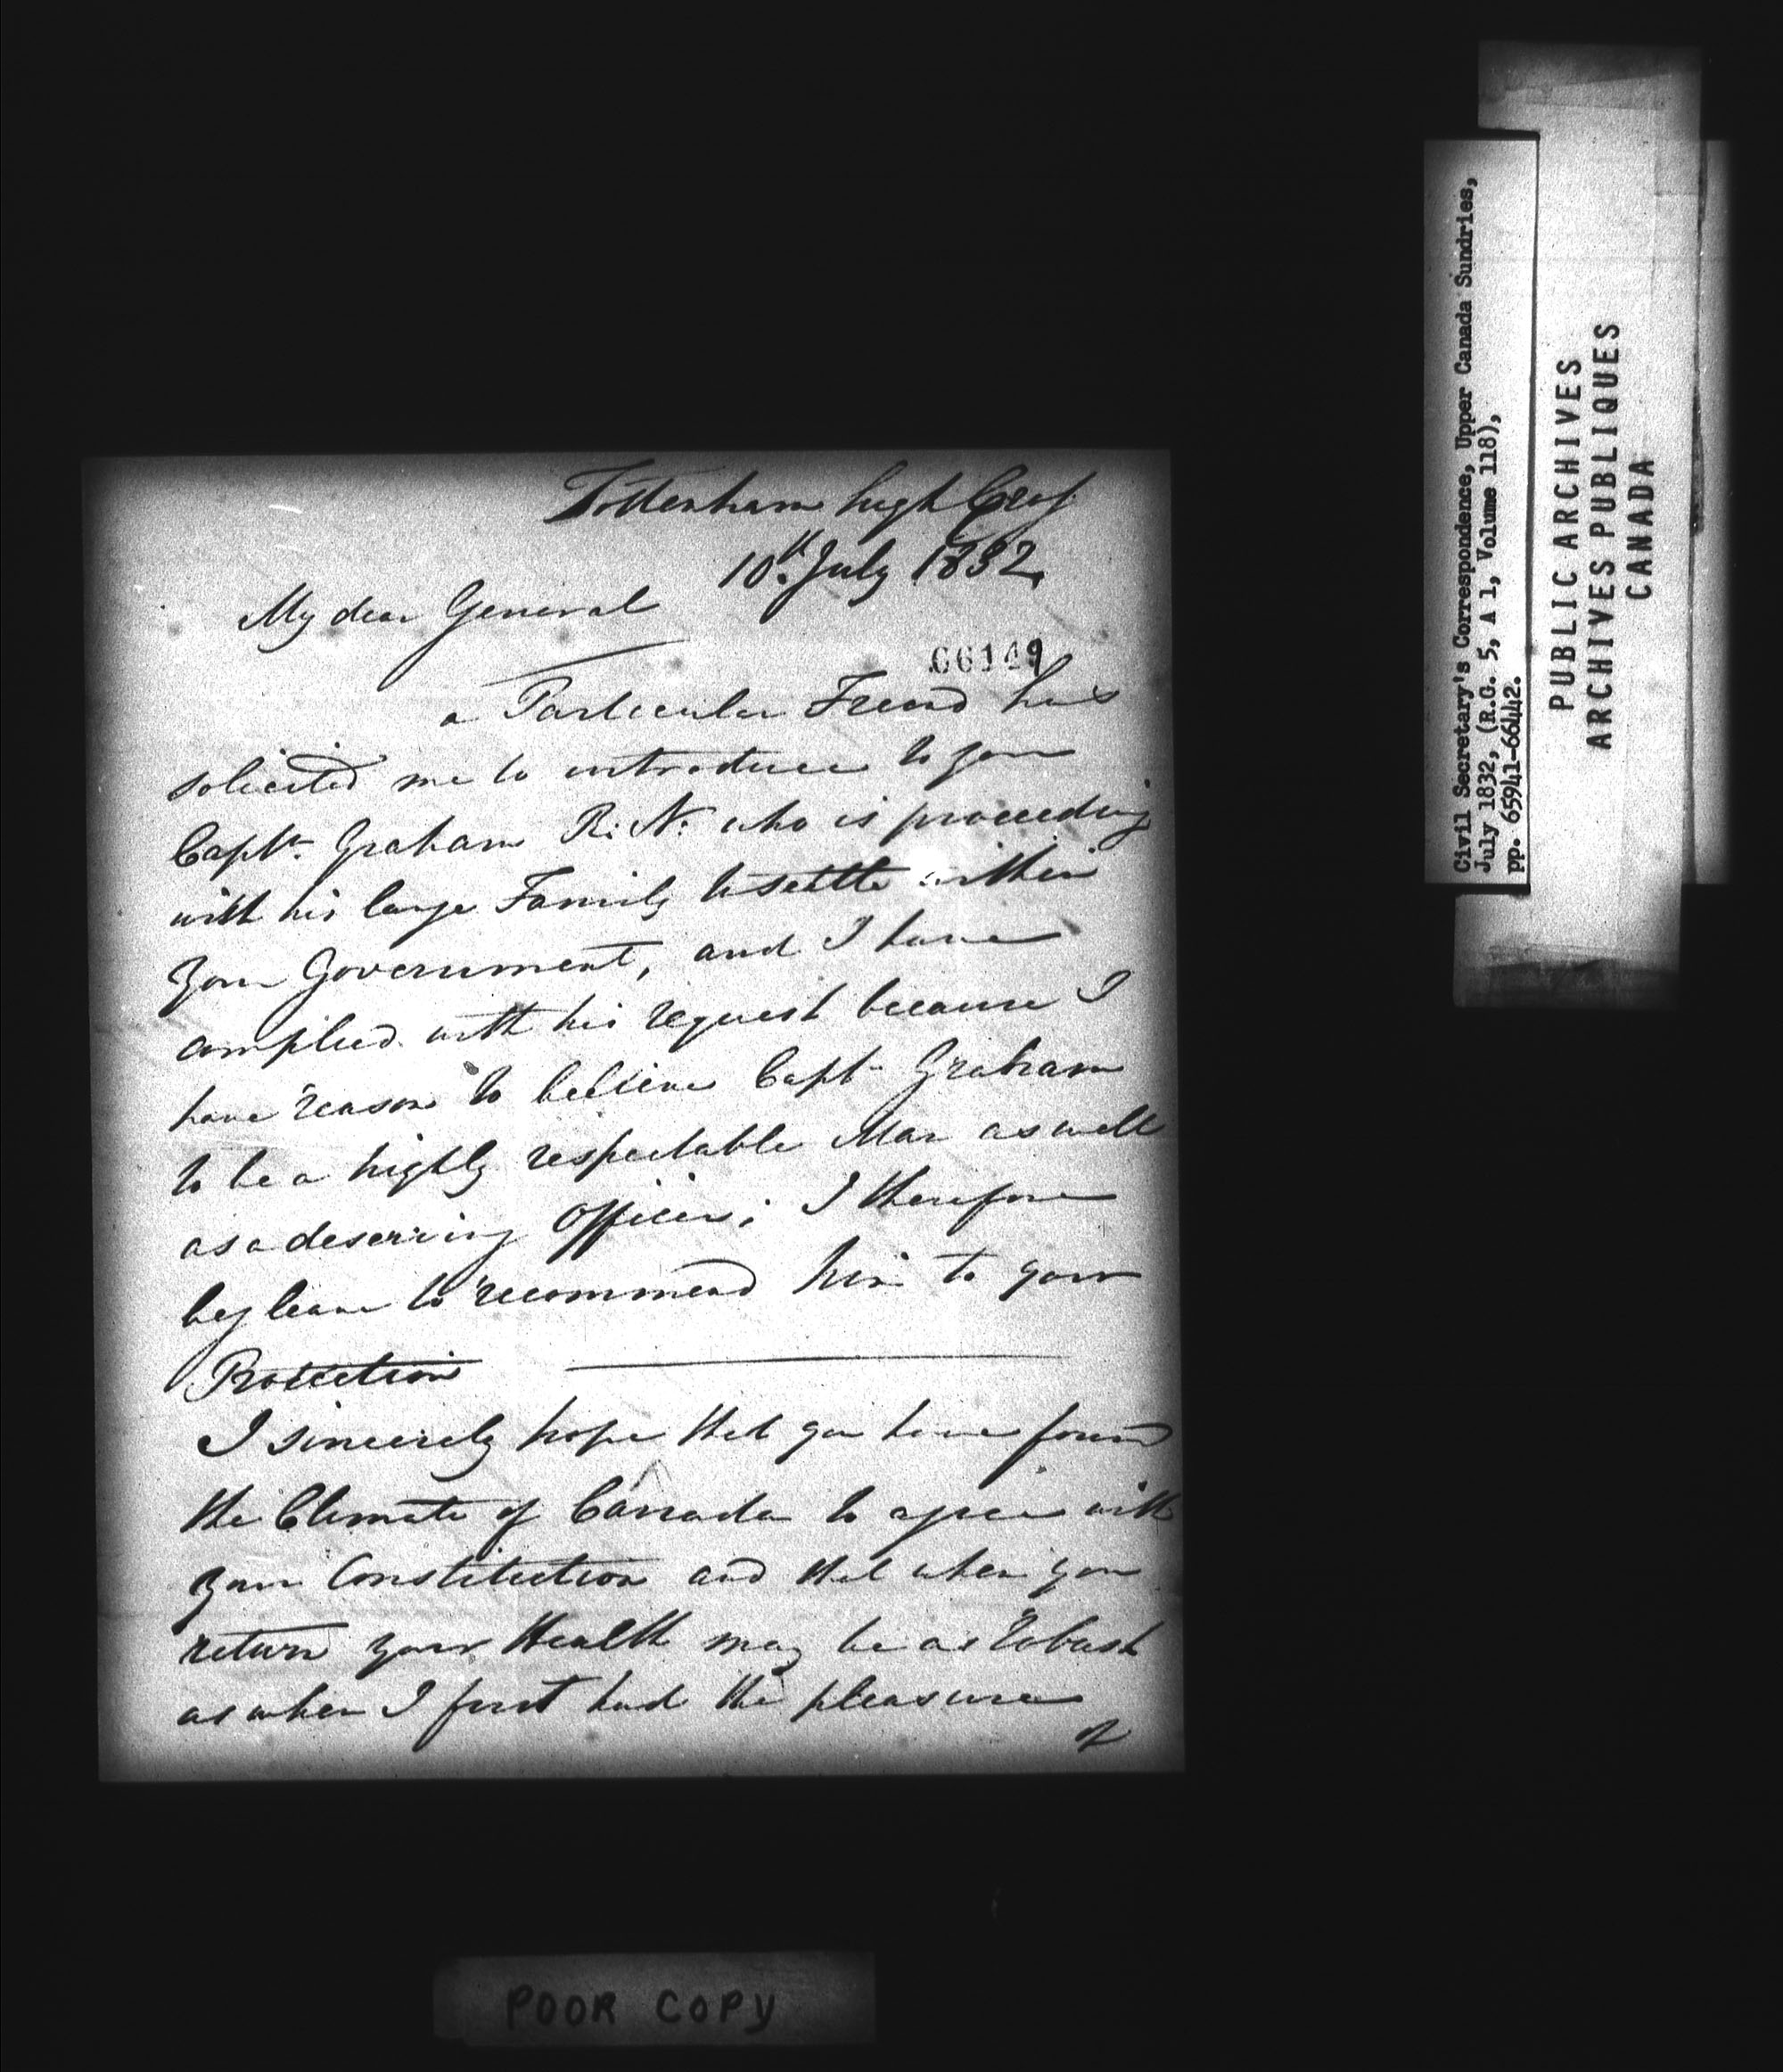 Tottenham high Cross
10th July 1832.
My dear General
66149
a Particular Friend has
solicited me to introduce to you
Captn. Graham R: N: who is proceeding
with his large Family to settle within
your Government, and I have
complied with his request because I
have reason to believe Captn Graham
to be a highly respectable Man as well
as a deserving Officer; I therefore
beg leave to recommend him to your
Protection
I sincerely hope that you have found
the Climate of Canada to agree with
your Constitution and that when you
return your Health may be as robust
as when I first had the pleasure
of
Civil Secretary's Correspondence, Upper Canada Sundries,
July 1832, (R.G. 5, A 1, Volume 118),
pp. 65941-66442.
PUBLIC ARCHIVES
ARCHIVES PUBLIQUES
CANADA
POOR COPY